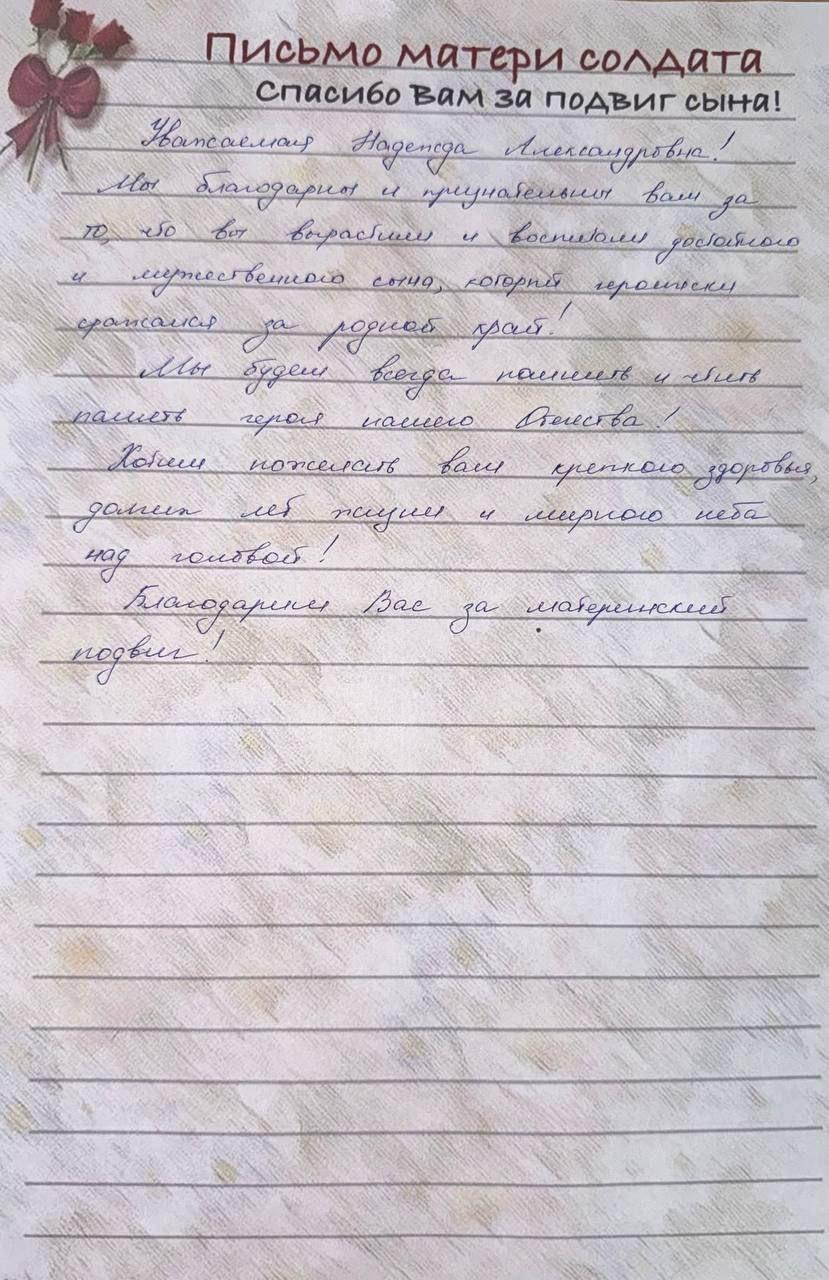 Письмо матери солдата
Спасибо вам за подвиг сына!
Уважаемая Надежда Александровна!
Мы благодарны и признательны вам за
то, что вы вырастили и воспитали достойного
и мужественного сына, который героически
сражался за родной край!
Мы будем всегда помнить и чтить
память героя нашего Отечества!
Хотим пожелать вам крепкого здоровья,
долгих лет жизни и мирного неба
над головой!
Благодарим Вас за материнский
подвиг!